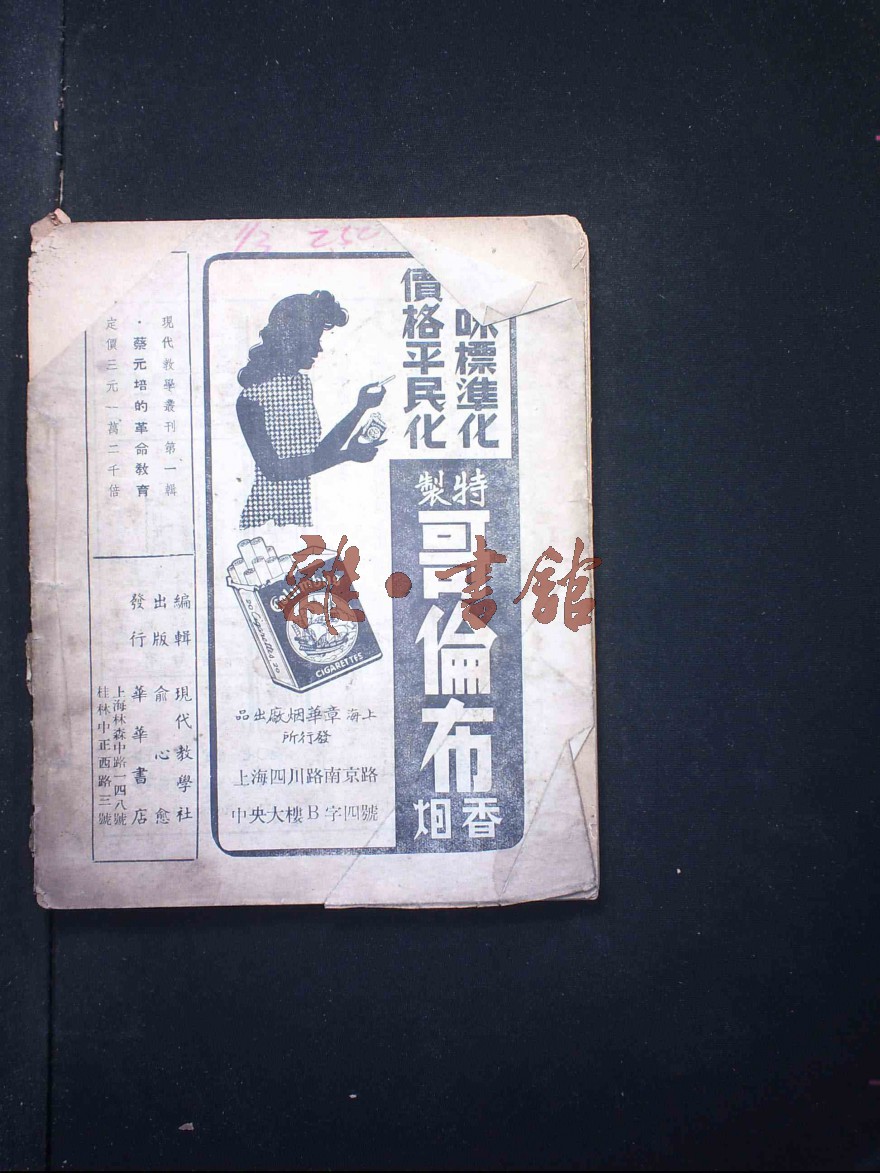 1/3 250
味標準化
價格平民化
特製
哥倫布
香烟
Columbus
20 Cigarettes 20
CIGARETTES
上海章華烟廠出品
發行所
上海四川路南京路
中央大樓B字四號
現代教學叢刊第一輯
·蔡元培的革命教育
定價三元一萬二千倍
編輯 現代教學社
出版 俞心愈
發行 華華書店
上海林森中路一四八號
桂林中正西路三號
雜·書館